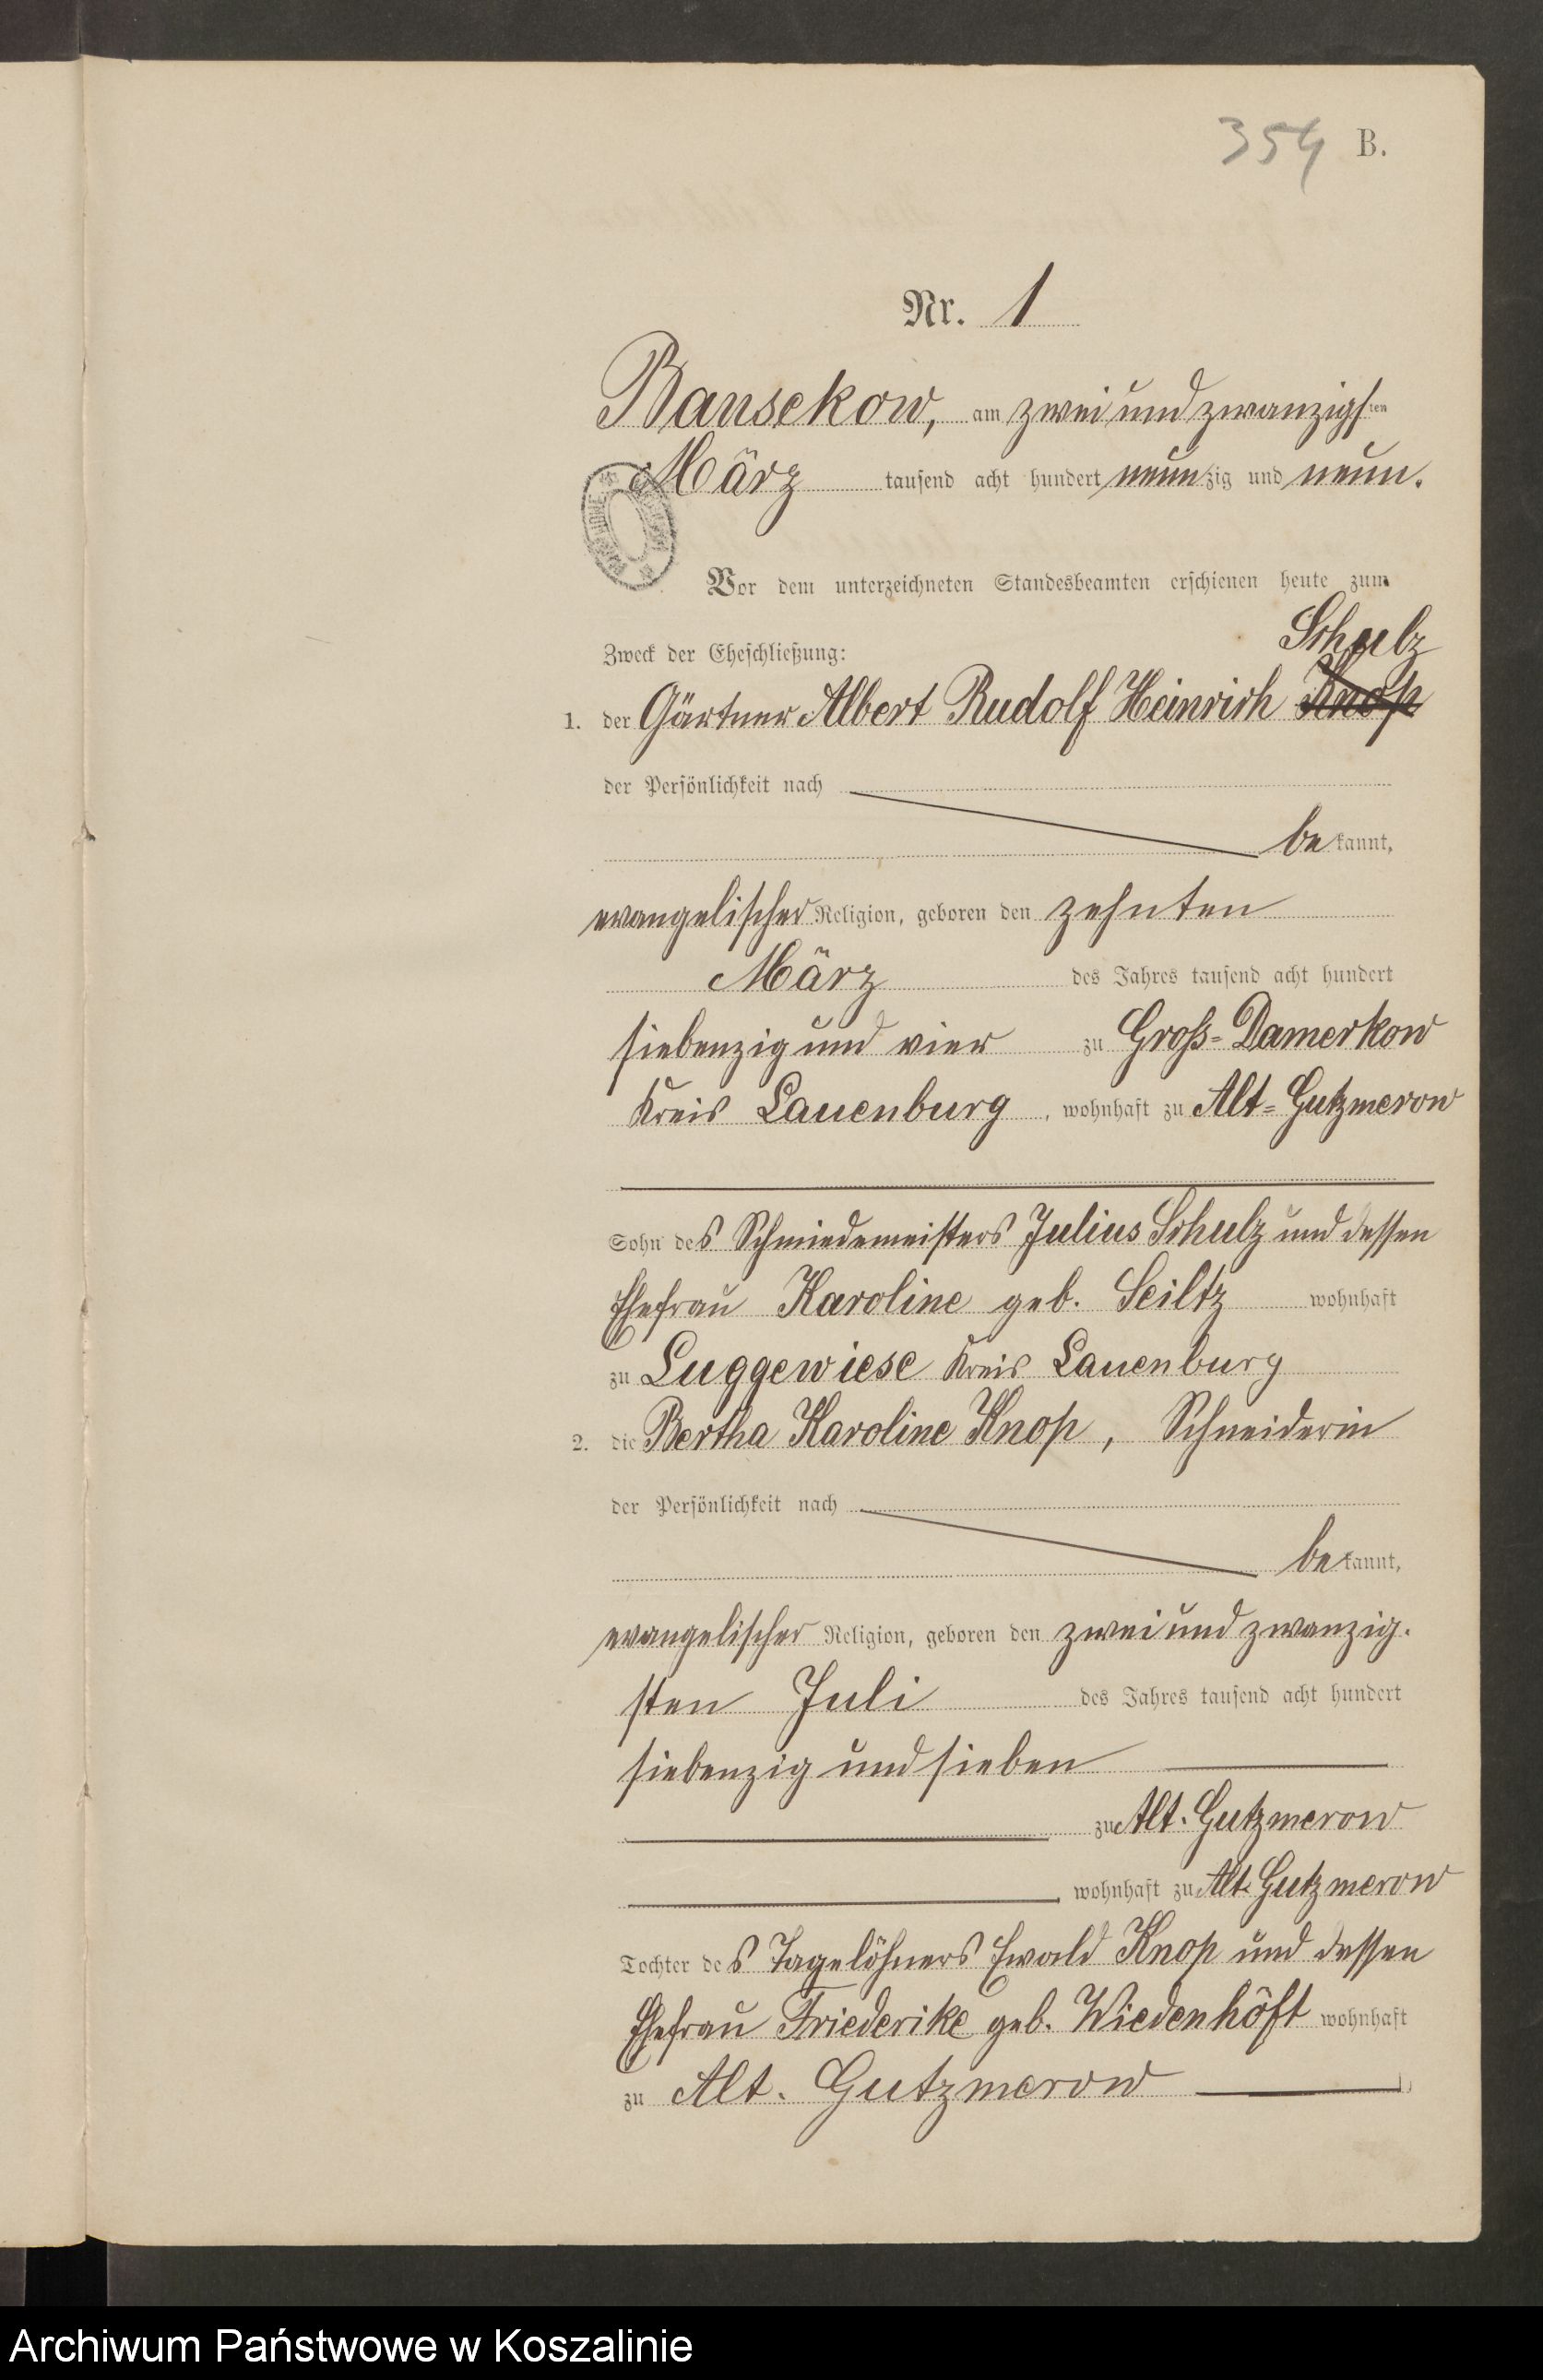 354 B.
Nr. 1
Bansekow, am zwei und zwanzigsten
März tausend acht hundert neunzig und neun.
Vor dem unterzeichneten Standesbeamten erschienen heute zum
Schulz
Zweck der Eheschließung:
1. der Gärtner Albert Rudolf Heinrich Knop
der Persönlichkeit nach
bekannt,
evangelischer Religion, geboren den zehnten
März des Jahres tausend acht hundert
siebenzig und vier zu Groß-Damerkow
Kreis Lauenburg, wohnhaft zu Alt-Gutzmerow
Sohn des Schmiedemeisters Julius Schulz und dessen
Ehefrau Karoline geb. Seiltz wohnhaft
zu Luggewiese Kreis Lauenburg
2. die Bertha Karoline Knop, Schneiderin
der Persönlichkeit nach
bekannt,
evangelischer Religion, geboren den zwei und zwanzig-
sten Juli des Jahres tausend acht hundert
siebenzig und sieben
zu Alt-Gutzmerow
, wohnhaft zu Alt-Gutzmerow
Tochter des Tagelöhners Ewald Knop und dessen
Ehefrau Friederike geb. Wiedenhöft wohnhaft
zu Alt-Gutzmerow
Archiwum Państwowe w Koszalinie